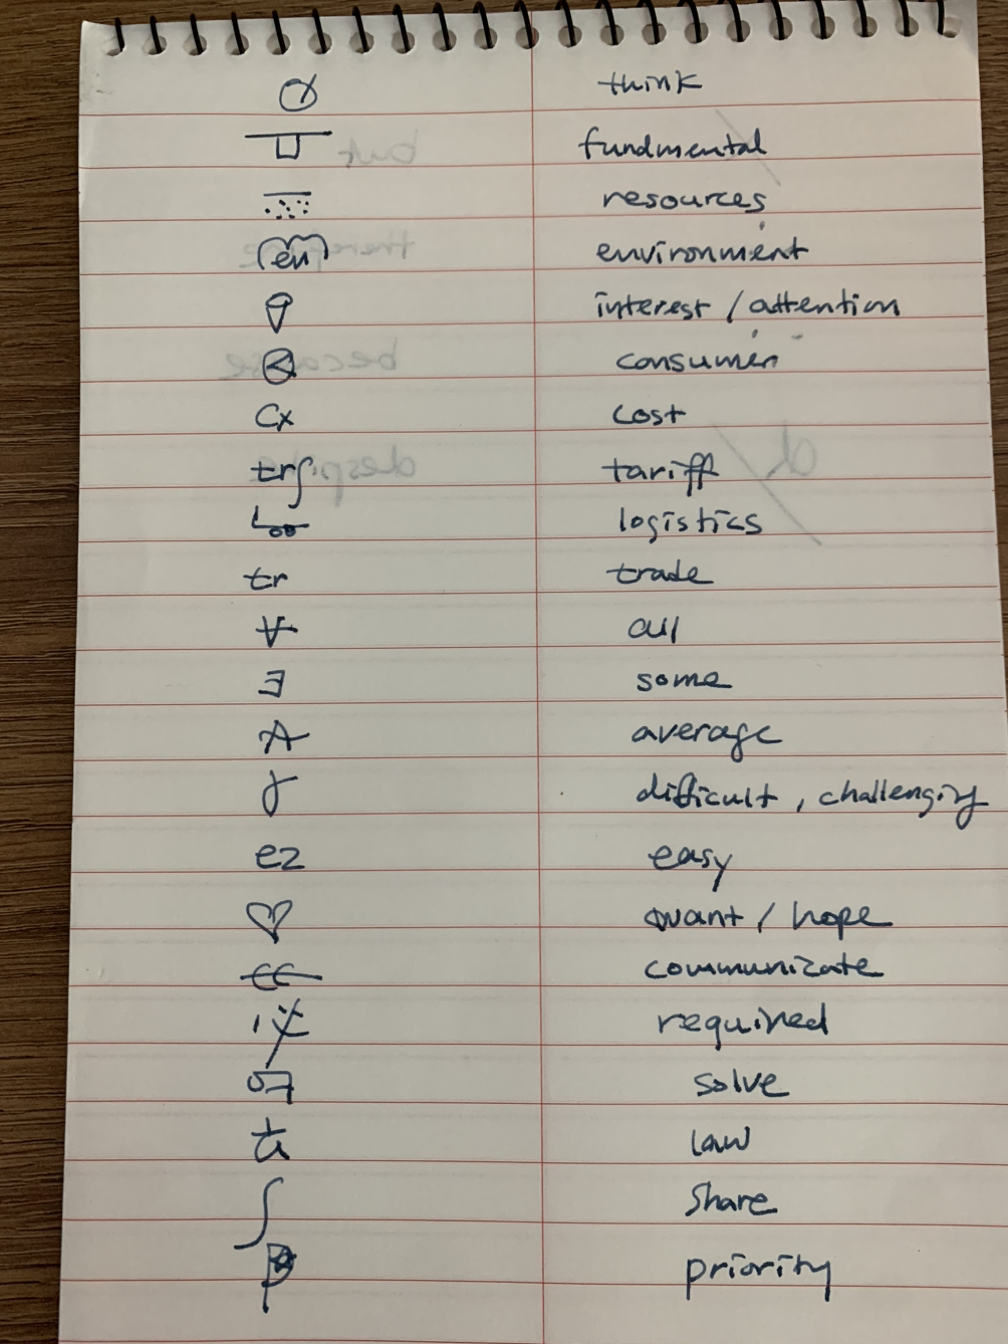 think
fundmental
resources
en environment
interest / attention
consumer
Cx cost
trf tariff
logistics
tr trade
∀ all
∃ some
A average
difficult, challenging
ez easy
♡ want / hope
communicate
required
solve
law
∫ share
priority